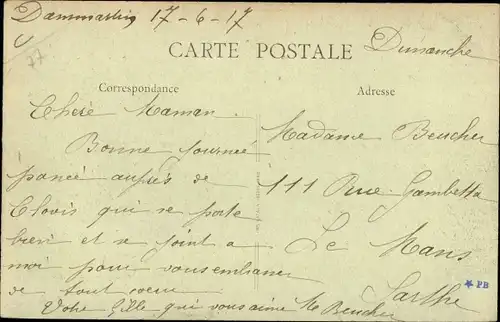 Dammartin 17-6-17
Dimanche
77
CARTE POSTALE
Correspondance
Adresse
Cheré Maman.
Bonne journeé
pancé auprés de
Clovis qui se porte
bien et se joint a
moi pour vous embrasser
de tout coeur
Votre fille qui vous aime M Beucher
Madame Beucher
111 Rue Gambetta
Le Mans
Sarthe
PB